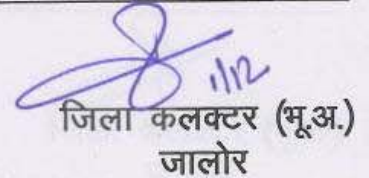 1/12
जिला कलक्टर (भू.अ.)
जालोर